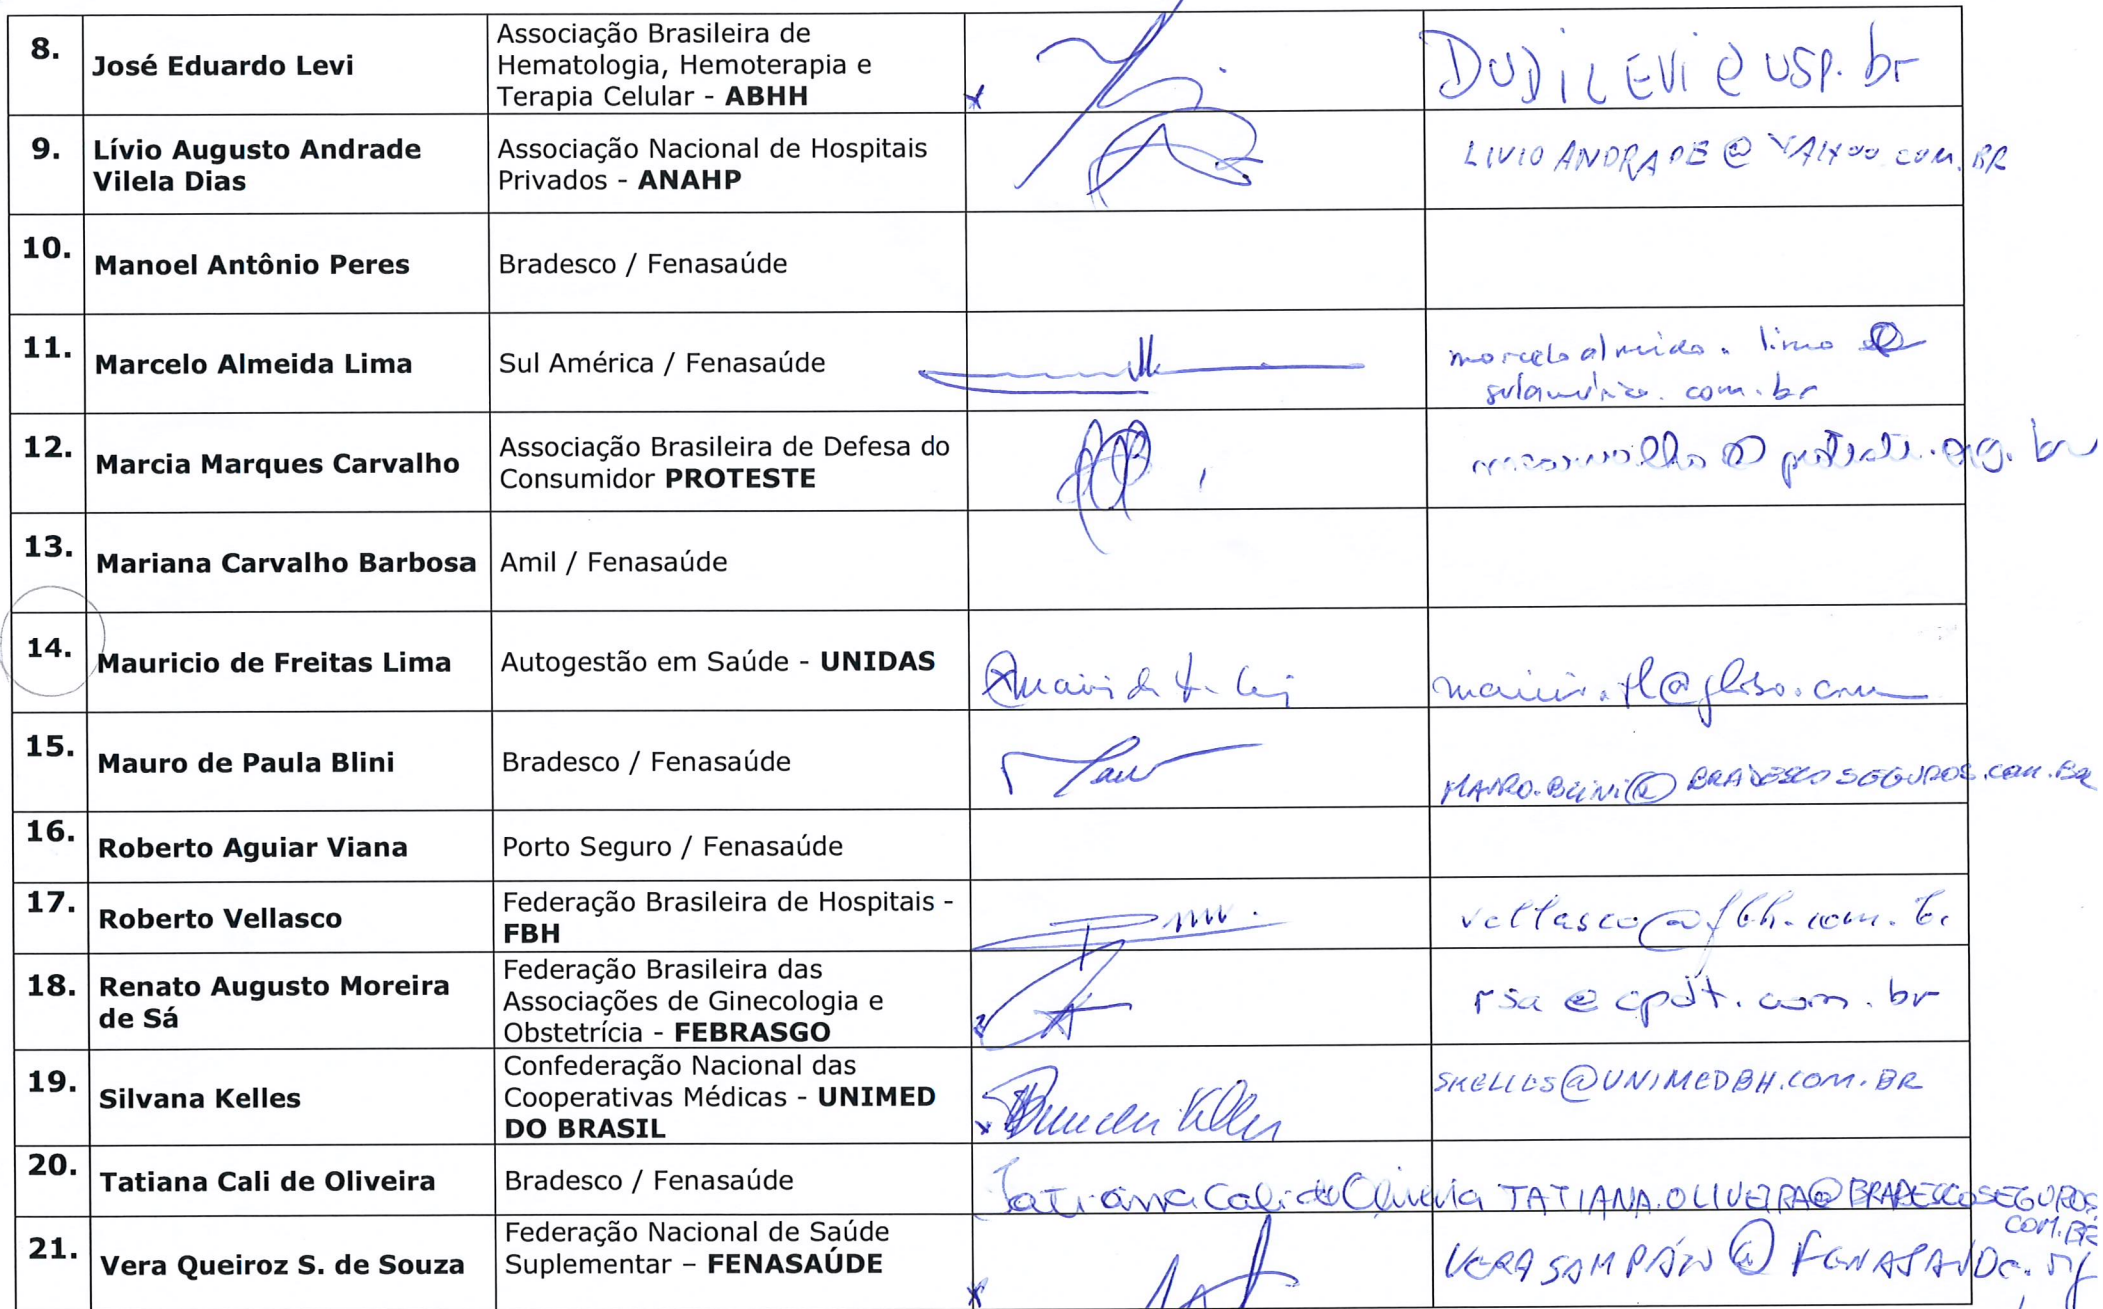 8.
José Eduardo Levi
Associação Brasileira de
Hematologia, Hemoterapia e
Terapia Celular - ABHH
DUDILEVI@USP.br
9.
Lívio Augusto Andrade
Vilela Dias
Associação Nacional de Hospitais
Privados - ANAHP
LIVIOANDRADE@YAHOO.COM.BR
10.
Manoel Antônio Peres
Bradesco / Fenasaúde
11.
Marcelo Almeida Lima
Sul América / Fenasaúde
marceloalmeida.lima@
sulamerica.com.br
12.
Marcia Marques Carvalho
Associação Brasileira de Defesa do
Consumidor PROTESTE
@proteste.org.br
13.
Mariana Carvalho Barbosa
Amil / Fenasaúde
14.
Mauricio de Freitas Lima
Autogestão em Saúde - UNIDAS
@globo.com
15.
Mauro de Paula Blini
Bradesco / Fenasaúde
MAURO.BLINI@BRADESCOSEGUROS.COM.BR
16.
Roberto Aguiar Viana
Porto Seguro / Fenasaúde
17.
Roberto Vellasco
Federação Brasileira de Hospitais -
FBH
vellasco@fbh.com.br
18.
Renato Augusto Moreira
de Sá
Federação Brasileira das
Associações de Ginecologia e
Obstetrícia - FEBRASGO
rsa@cpdt.com.br
19.
Silvana Kelles
Confederação Nacional das
Cooperativas Médicas - UNIMED
DO BRASIL
SKELLES@UNIMEDBH.COM.BR
20.
Tatiana Cali de Oliveira
Bradesco / Fenasaúde
Tatiana Cali de Oliveira
TATIANA.OLIVEIRA@BRADESCOSEGUROS
COM.BR
21.
Vera Queiroz S. de Souza
Federação Nacional de Saúde
Suplementar – FENASAÚDE
VERASAMPAIO@FENASAUDE.